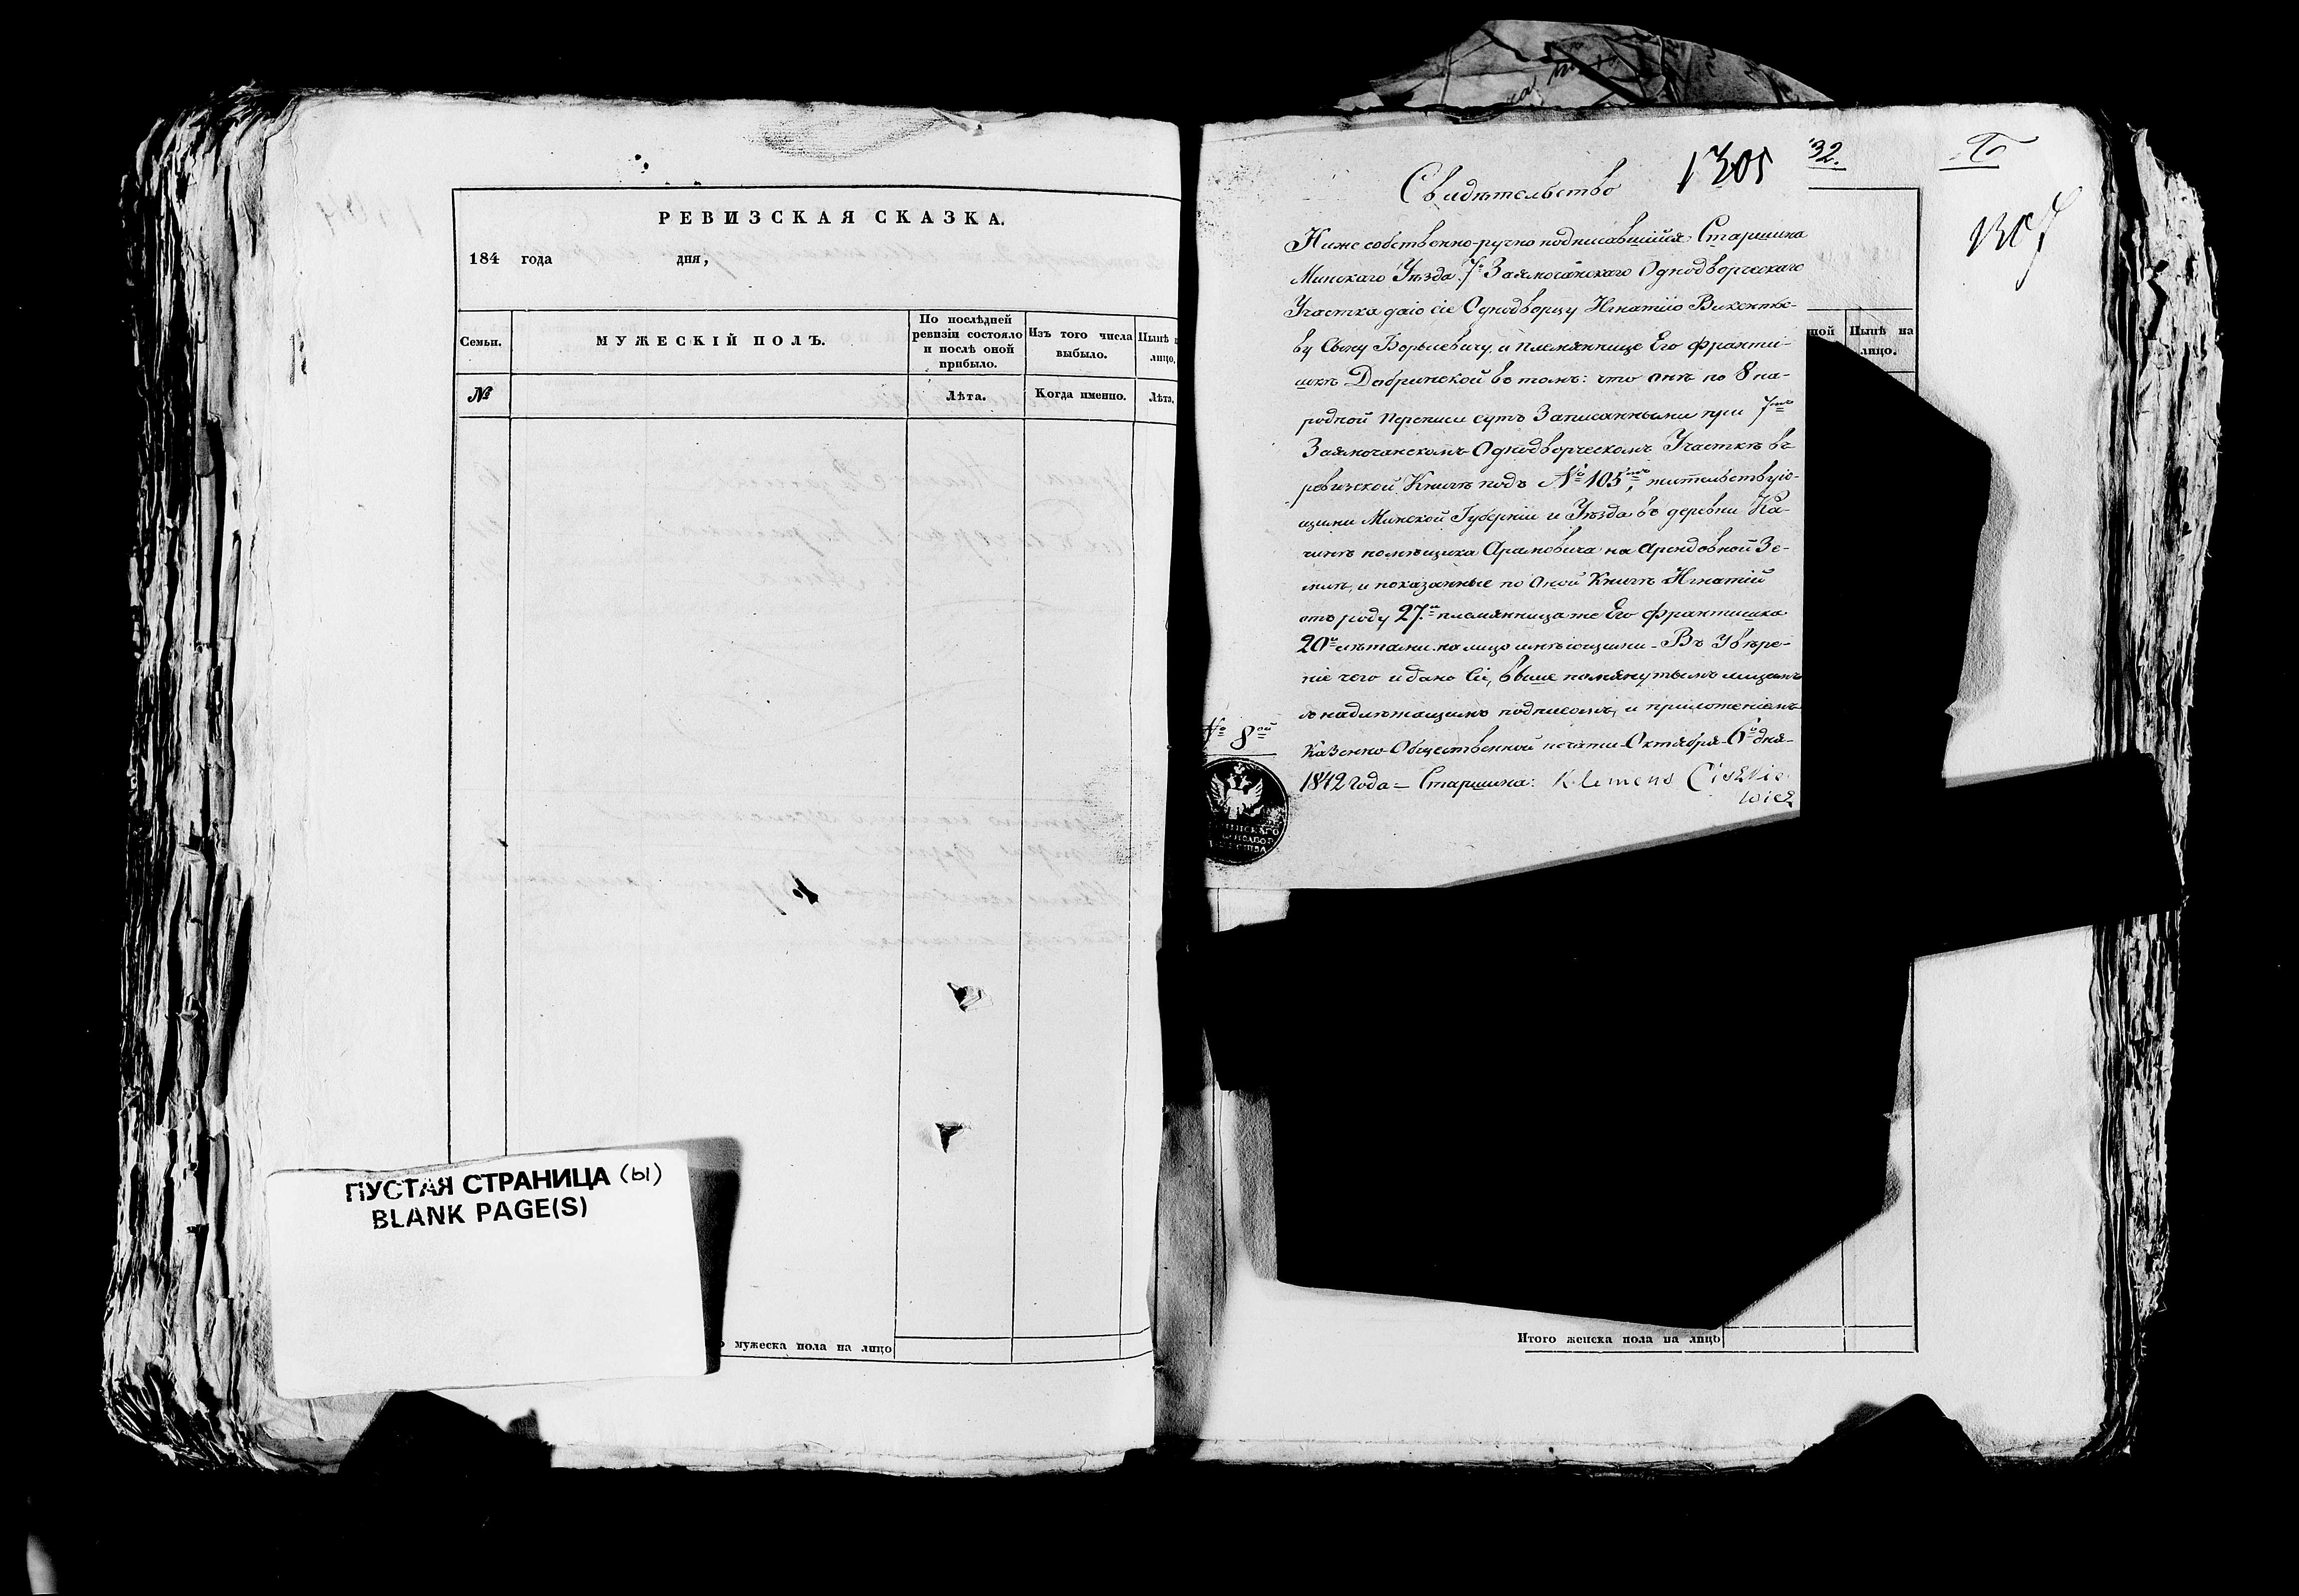 РЕВИЗСКАЯ СКАЗКА.
184 года дня,
Семьи.
МУЖЕСКІЙ ПОЛЪ.
По послѣдней ревизіи состояло и послѣ оной прибыло.
Изъ того числа выбыло.
Нынѣ
лицо.
№
Лѣта.
Когда именно.
Лѣта.
мужеска пола на лицо
ПУСТАЯ СТРАНИЦА (ы)
BLANK PAGE(S)
1305
32.
Свидѣтельство
Ниже собственно-ручно подписавшійся Старшина
Минскаго Уѣзда 7го Заямочанскаго Однодворческаго
Участка даю сіе Однодворцу Игнатію Викентье-
ву Сыну и племяннице Его Франти-
шкѣ Добринской въ томъ: что онѣ по 8 на-
родной переписи суть Записанными при 7мъ
Заямочанскомъ Однодворческомъ Участкѣ въ
ревизской Книгѣ подъ № 105мъ, жительствую-
щими Минской Губерніи и Уѣзда въ деревни Ка-
чинѣ помѣщика на Арендовной Зе-
млѣ, и показанные по Оной Книгѣ Игнатій
отъ роду 27и племянница же Его Франтишка
20и лѣтами на лицо имѣющими - Въ Увѣре-
ніе чего и дано Сіе, выше помянутымъ лицамъ
съ надлѣжащимъ подписомъ, и приложеніемъ
Казенно-Общественной печати Октября 6го дня
1842 Года = Старшина: Klemens Ciszkie
wicz
№ 8ой
1307
шой
Нынѣ на лицо.
Итого женска пола на лицо